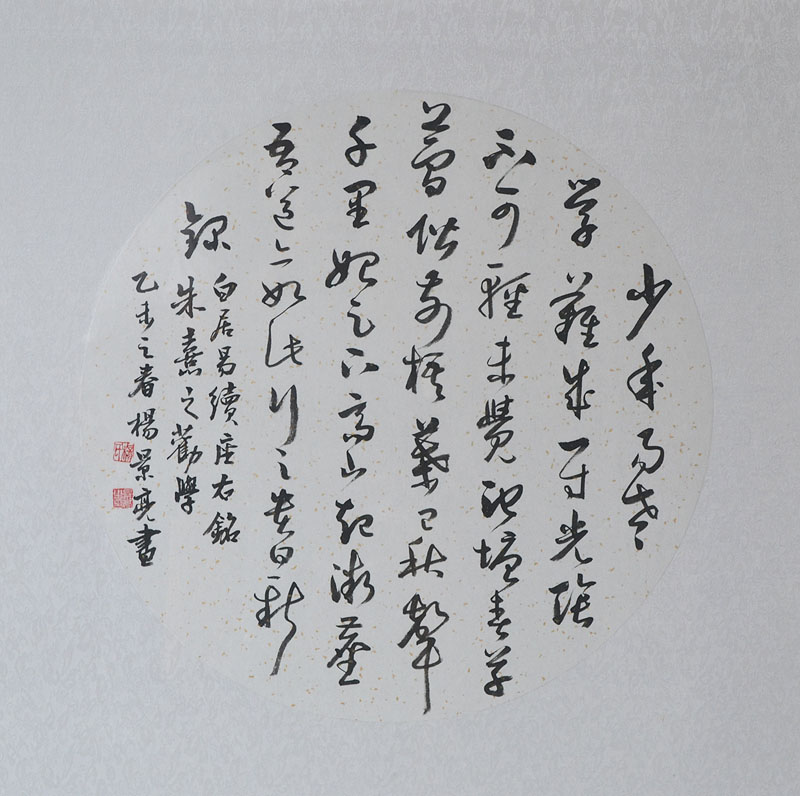 少年易老
学難成一寸光陰
不可輕未覺池塘春草
夢階前梧葉已秋聲
千里始足下高山起微塵
吾道亦如此行之貴日新
錄白居易續座右銘
朱熹之勸學
乙未之春楊景亮書